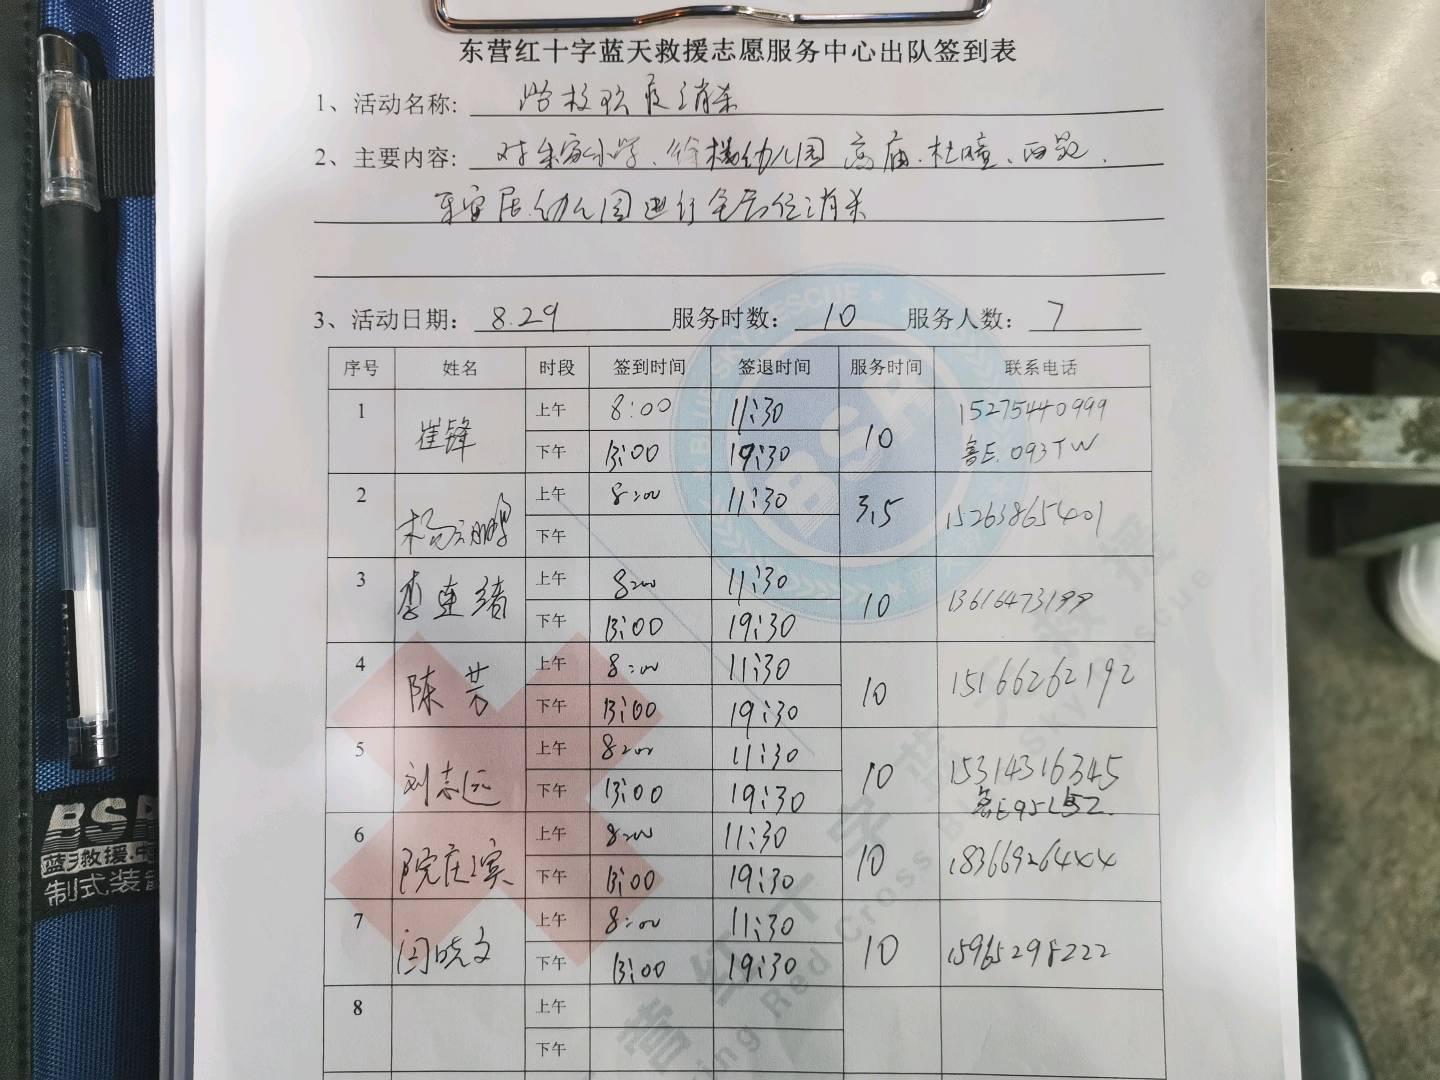 东营红十字蓝天救援志愿服务中心出队签到表
1、活动名称: 学校防疫消杀
2、主要内容: 对 小学、徐楼幼儿园 高庙、杜疃、西
安居幼儿园进行全方位消杀
3、活动日期: 8.29 服务时数: 10 服务人数: 7
序号 姓名 时段 签到时间 签退时间 服务时间 联系电话
1 崔锋 上午 8:00 11:30 10 15275440999
下午 13:00 19:30 鲁E.093TW
2 杨云鹏 上午 8:00 11:30 3.5 15263865401
下午
3 李连绪 上午 8:00 11:30 10 13616473199
下午 13:00 19:30
4 陈芳 上午 8:00 11:30 10 15166262192
下午 13:00 19:30
5 刘志远 上午 8:00 11:30 10 15314316345
下午 13:00 19:30
6 上午 8:00 11:30 10 18366926444
下午 13:00 19:30
7 闫晓文 上午 8:00 11:30 10 15965298222
下午 13:00 19:30
8 上午
下午
BSR
蓝天救援
制式装